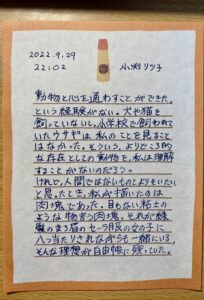 2022.9.29
22:02
小渕リツ子
動物と心を通わすことができた、
という経験がない。犬や猫を
飼っていないし、小学校で飼われて
いたウサギは私のことを見ること
はなかった。そういう、よりどころ的
な存在としての動物を、私は理解
することがないのだろう。
けれど、人間ではないものとよりそいたい、
と思ったとき、私が描いたのは
肉塊であった。目もない粘土の
ような物言う肉塊。それが
のまろ眉のセーラー服の女の子に
八つ当たりされながらも一緒にいる、
そんな理想が自由帳に残っていた。